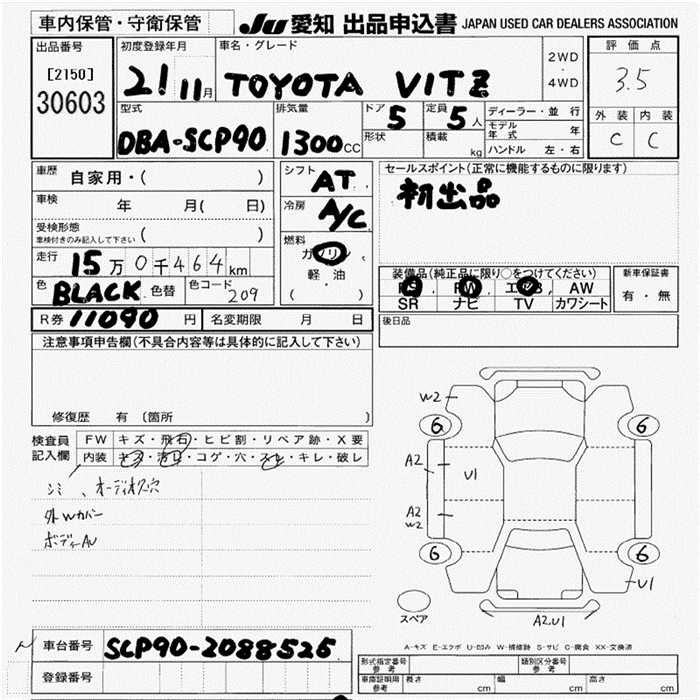 車内保管・守衛保管
JU 愛知 出品申込書 JAPAN USED CAR DEALERS ASSOCIATION
出品番号
[2150]
30603
初度登録年月
21 11月
車名・グレード
TOYOTA VITZ
2WD
・
4WD
評価点
3.5
外装 内装
C C
型式
DBA-SCP90
排気量
1300CC
ドア 5
形状
定員 5人
積載 kg
ディーラー・並行
モデル年式 年
ハンドル 左・右
車歴 自家用・( )
車検 年 月( 日)
受検形態
車検付きのみ記入して下さい ( )
走行 15万0千464km
色 BLACK 色替 色コード 209
R券 11090円 名変期限 月 日
シフト AT
冷房 A/C
燃料
ガソリン
軽・油
( )
セールスポイント(正常に機能するものに限ります)
初出品
装備品(純正品に限り○をつけてください)
PS PW エアB AW
SR ナビ TV カワシート
新車保証書
有・無
後日品
注意事項申告欄(不具合内容等は具体的に記入して下さい)
修復歴 有 〔箇所 〕
検査員記入欄
FW キズ・飛石・ヒビ割・リペア跡・X要
内装 キズ・汚レ・コゲ・穴・スレ・キレ・破レ
シミ、オーディオ穴
外Wカバー
ボディーAU
W2
6 6
A2 U1
A2
W2
6 6
U1
スペア
A2.U1
A-キズ E-エクボ U-凹み W-補修跡 S-サビ C-腐食 XX-交換済
車台番号 SCP90-2088526
登録番号
形式指定番号
参考
類別区分番号
参考
車庫証明用
参考
長さ cm 幅 cm 高さ cm